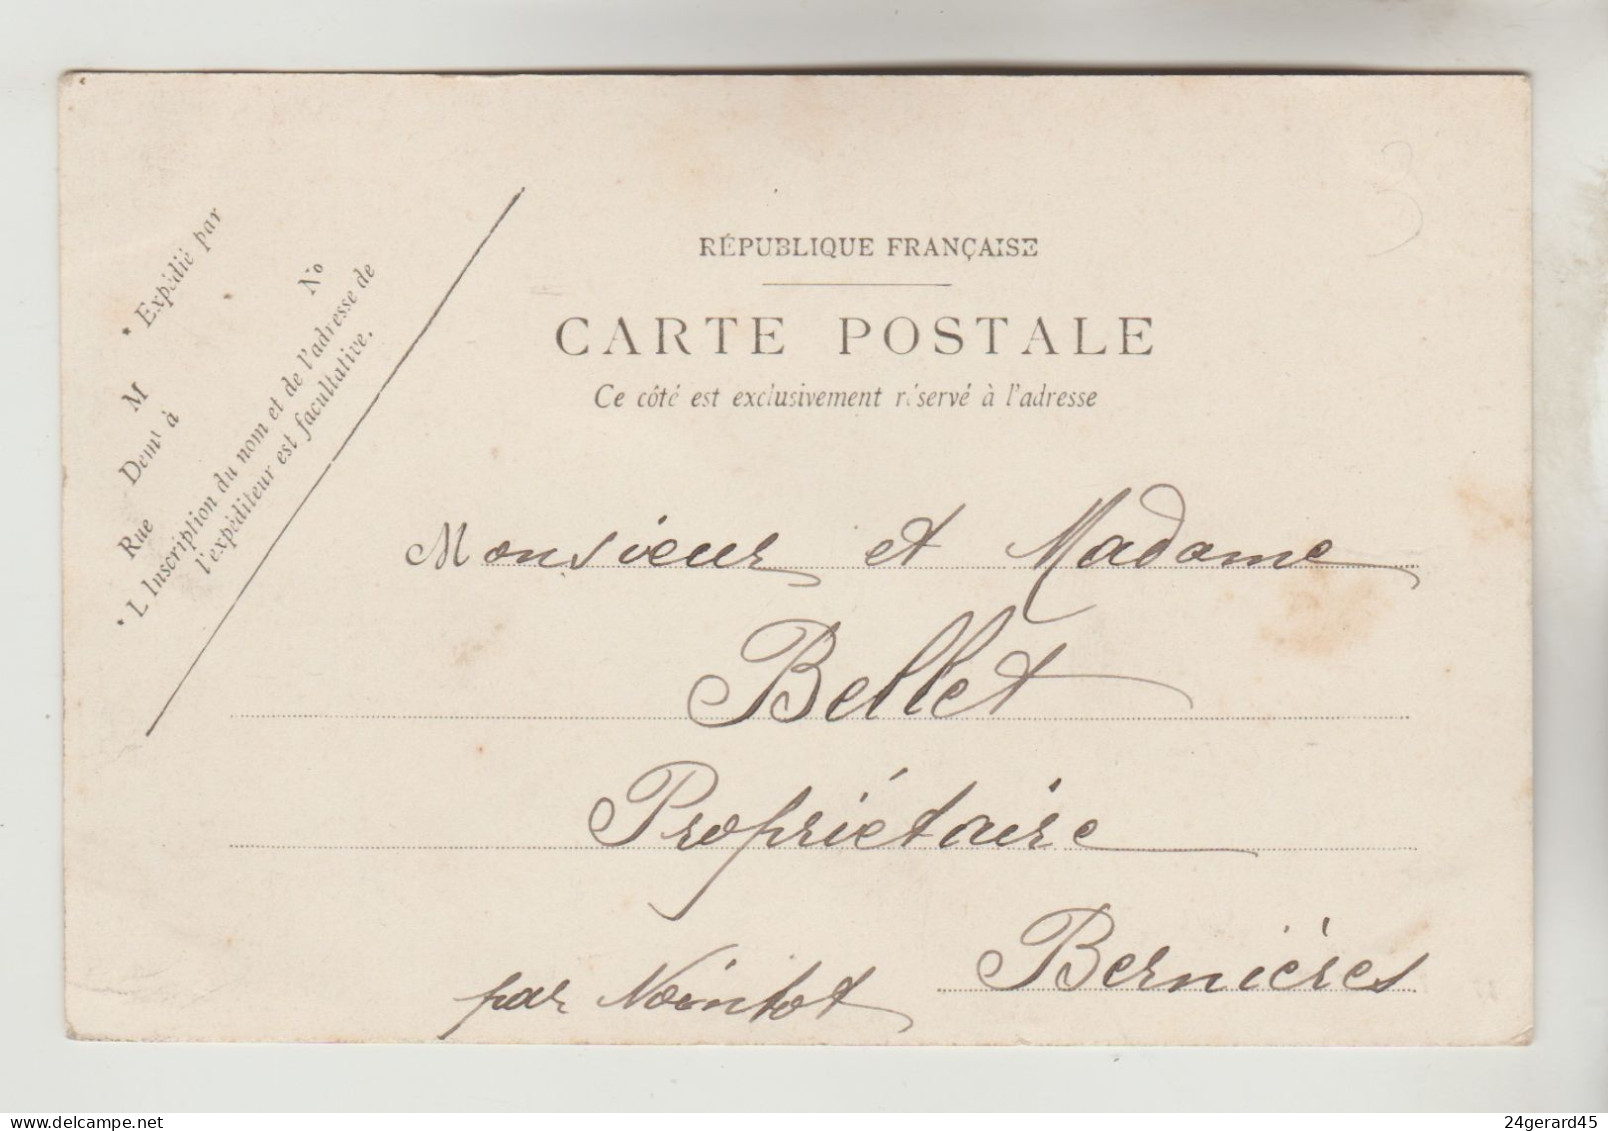 * Expédié par
M
Demt à
Rue
No
* L'Inscription du nom et de l'adresse de
l'expéditeur est facultative.
RÉPUBLIQUE FRANÇAISE
CARTE POSTALE
Ce côté est exclusivement réservé à l'adresse
3
Monsieur et Madame
Bellet
Propriétaire
Bernières
par Nointot
24gerard45